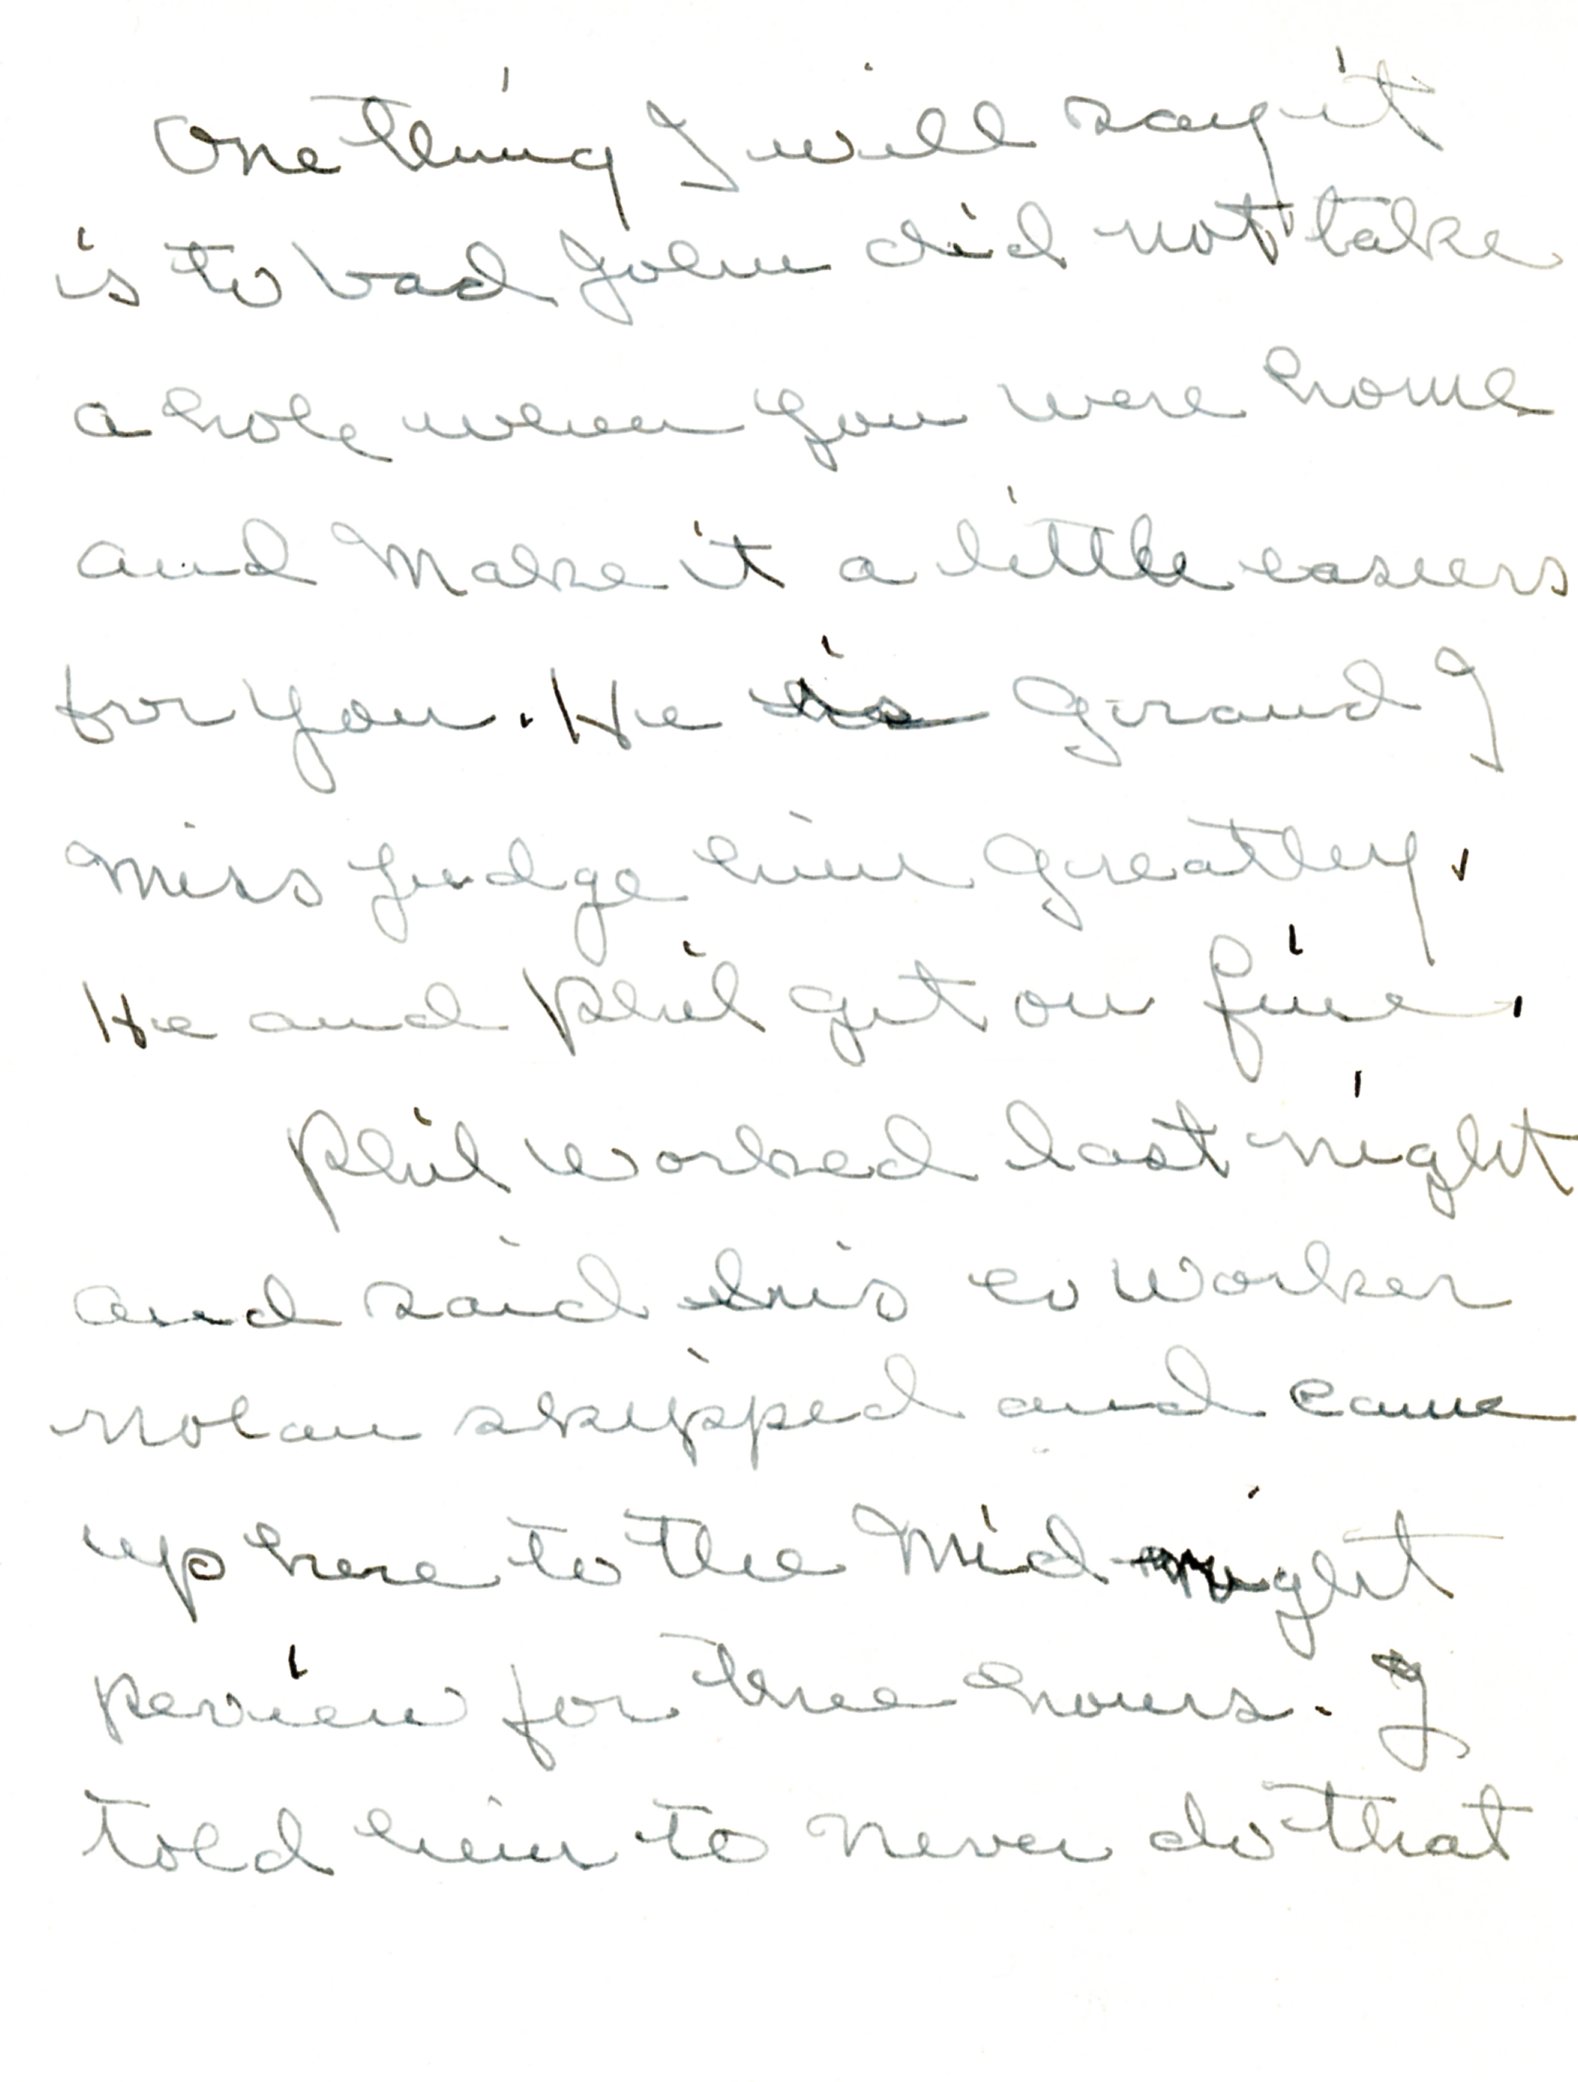 One thing I will say it
is to bad John did not take
a hole when you were home
and Make it a little easiers
for you. He is Grand I
Miss judge him Greatley.
He and Phil get on fine.
Phil worked last night
and said his co worker
Nolan skipped and came
up here to the Mid-night
peview for three hours. I
told him to never do that